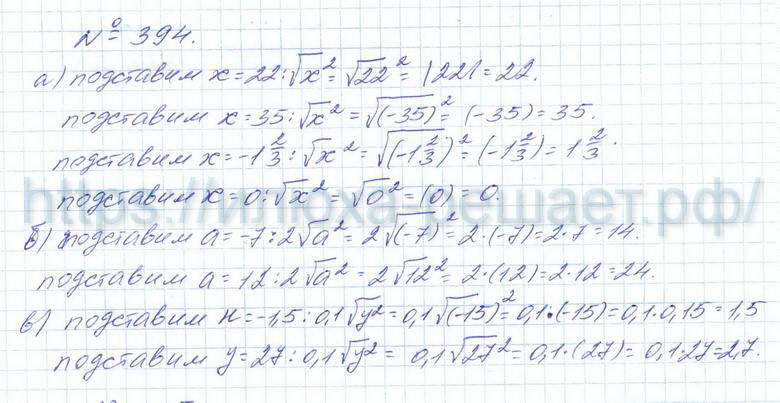 № 394.
а) подставим x=22: √x² = √22² = |22| = 22.
подставим x=35: √x² = √(-35)² = (-35) = 35.
подставим x=-1 2/3: √x² = √(-1 2/3)² = (-1 2/3) = 1 2/3.
подставим x=0: √x² = √0² = (0) = 0.
https://илюха-решает.рф/
б) подставим a=-7: 2√a² = 2√(-7)² = 2·(-7) = 2·7 = 14.
подставим a=12: 2√a² = 2√12² = 2·(12) = 2·12 = 24.
в) подставим н=-1,5: 0,1√y² = 0,1√(-15)² = 0,1·(-15) = 0,1·0,15 = 1,5
подставим y=27: 0,1√y² = 0,1√27² = 0,1·(27) = 0,1·27 = 2,7.